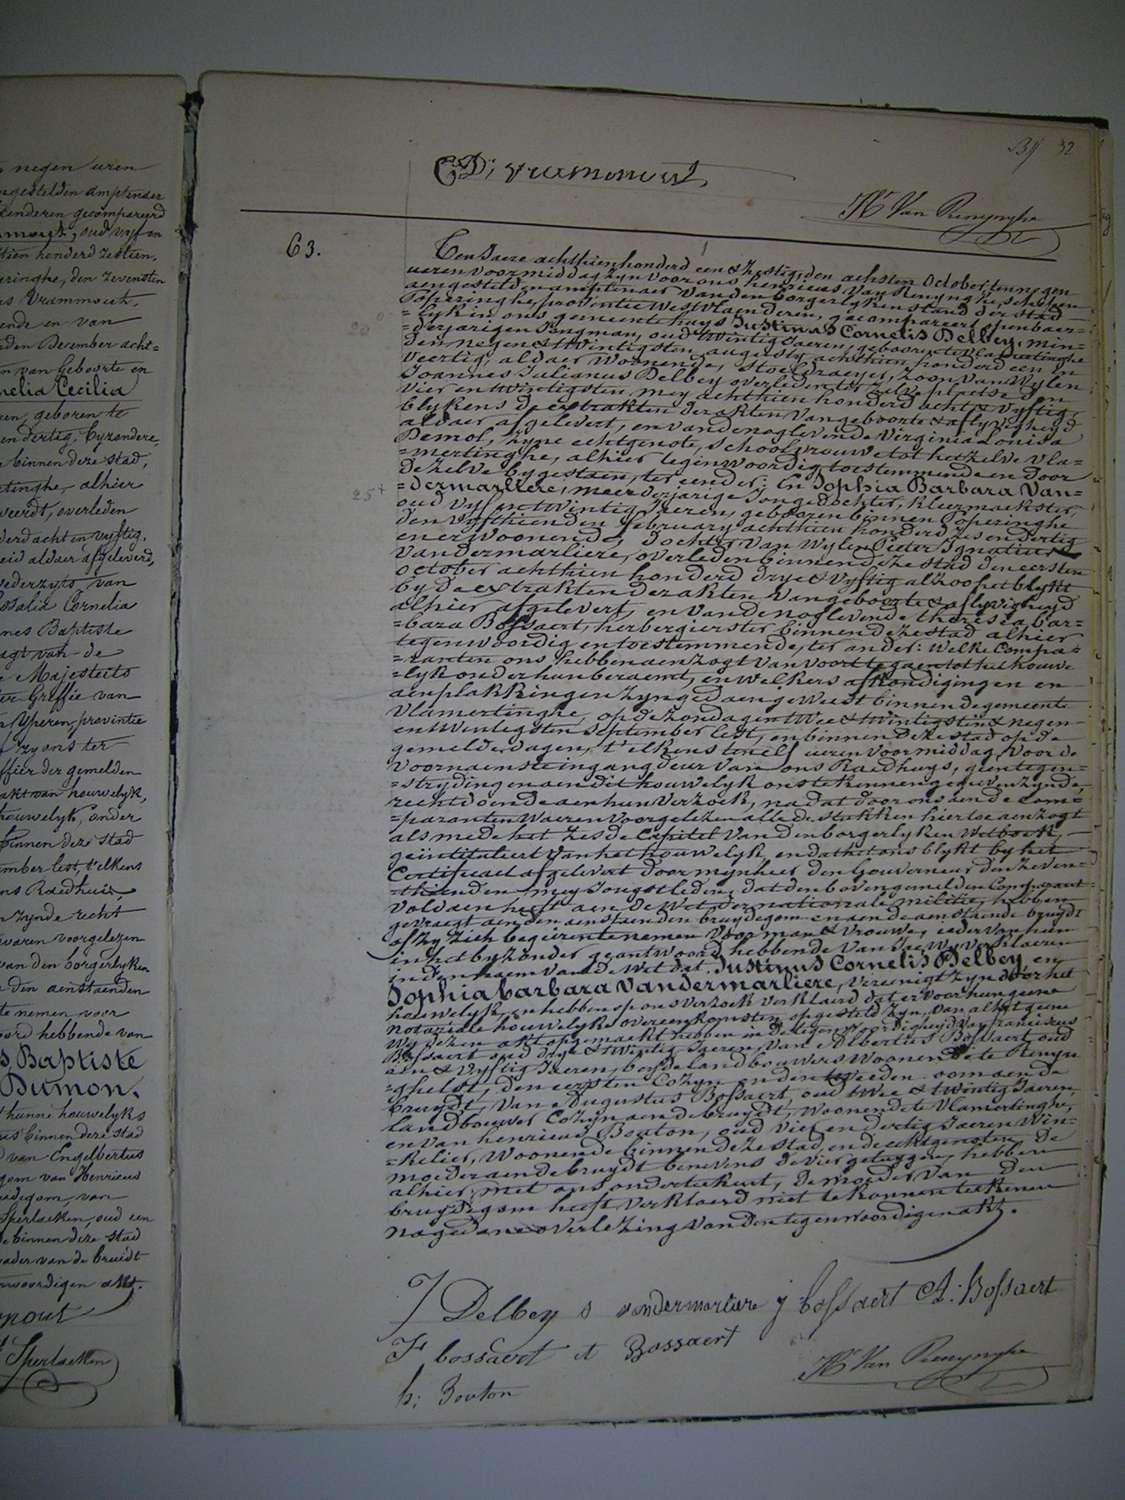 negen uren
ngestelden amptenaer
kinderen gecompareerd
oud vyf en
tien honderd zestien,
eringhe, den zevensten
us Vrammout,
ende en van
den December acht=
n van geboorte en
nelia Cecilia
en, geboren te
en dertig, byzondere,
binnen deze stad,
tinghe, alhier
weerdt, overleden
derd acht en vyftig,
eid aldaer afgeleverd,
wederzyts van
osalie Cornelia
nes Baptiste
agt van de
Majesteits
ter Griffie van
n Yperen, provintie
zy ons ter
ffier der gemelden
akt van houwelyk,
houwelyk, onder
binnen deze stad
ember lest, t'elkens
ns Raedhuis,
n zynde recht
waren voorgelezen
van den borgerlyken
den aenstaenden
te nemen voor
oord hebbende van
s Baptiste
Dumon.
hunne houwelyks
us binnen deze stad
van Engelbertus
gom van Henricus
uidigom, van
Sperlaeken, oud een
e binnen deze stad
vader van de bruidt
nwoordigen akt.
mout
Sperlaeken
32
Vrammout
Hs Van Renynghe
63.
Een Jaere achthien honderd een & zestig, den achsten October, ten negen
ueren voormiddag, zyn voor ons henricus Van Renynghe, schepen
aengestelden amptenaer van den borgerlyken stand der stad
Poperinghe, provintie West Vlaenderen, gecompareert openbaer=
=lyk in ons gemeente huys Justinus Cornelis Delbey, min=
=derjarigen Jongman, oud twintig Jaeren, geboren te Vlamertinghe
den negen & twintigsten augusty achthien honderd een en
veertig, aldaer woonende, stoeldraeyer, zoon van wylen
Joannes Julianus Delbey overleden ter zelve plaetse den
vier en twintigsten mey achthien honderd acht & vyftig
blykens de extrakten der akten van geboorte & aflyvigheyd
aldaer afgelevert, en van de nog levende Virginia Lonisa
Demol, zyne echtgenote, schoolvrouwe tot het zelve Vla=
=mertinghe, alhier tegenwoordig, toestemmende en door
de zelve bygestaen, ter eender; En Sophia Barbara Van=
=dermarliere, meerderjarige Jonge dochter, kleermaekster,
oud vyf en twintig Jaeren, geboren binnen Poperinghe
den vyfthienden february achthien honderd zes en dertig
en er woonende, dochter van wylen Pieter Ignatius
Vandermarliere, overleden binnen deze stad den eersten
october achthien honderd drye & vyftig alzoo het blykt
by de extrakten der akten van geboorte & aflyvigheyd
alhier afgelevert, en van de nog levende theresia bar=
=bara Bossaert, herbergierster binnen deze stad alhier
tegenwoordig en toestemmende, ter ander; Welke Compa=
=ranten ons hebben aenzogt van voort te gaen tot het houwe
=lyk onder hun beraemt, en welkers afkondigingen en
aenplakkingen zyn gedaen geweest binnen de gemeente
Vlamertinghe op de zondagen twee & twintigsten & negen=
en twintigsten september lest, en binnen deze stad op de
gemelde dagen, t'elkens ten elf ueren voormiddag, voor de
voornaemste ingangdeur van ons Raedhuys, geen tegen=
=strydingen aen dit houwelyk ons te kennen gegeven zynde
recht doende aen hun verzoek, na dat door ons zende Com=
=paranten waeren voorgelezen alle de stukken hiertoe aenzogt
als mede het zesde Capitel van den borgerlyken Wetboek,
geïntituleert van het houwelyk, en dat het ons blykt by het
Certificaet afgelevert door mynheer den Gouverneur den zeven=
=thienden mey Jongstleden, dat den bovengemelden Comparant
voldaen heeft aen de Wet der nationale militie, hebben
gevraegt aen den aenstaenden bruydegom en aen de aenstaende bruydt
of zy zich begeiren te nemen voor man & vrouwe, ieder van hun
in het byzonder geantwoord hebbende van Jae, Wy verklaeren
in den naem van de Wet dat Justinus Cornelis Delbey, en
Sophia barbara Vandermarliere, vereenigt zyn door het
houwelyk, en hebben op ons verzoek verklaerd dat er voor hun geene
notariale houwelyks overeenkomsten opgesteld zyn, van al het gene
Wy dezen akt opgemaekt hebben in de tegenwoordigheyd van franciscus
Bossaert oud drye & twintig Jaeren, van Albertus Bossaert oud
een & vyftig Jaeren, beyde landbouwers woonende te Renyn
=ghelst, den eersten Cozyn en den tweeden oom aen de
bruydt, van Augustus Bossaert, oud twee & twintig Jaeren,
landbouwer Cozyn aen de bruydt, woonende te Vlamertinghe,
en van henricus Bouton, oud vier en dertig Jaeren Win=
=kelier, woonende binnen deze stad, en de echtgenoten de
moeder aen de bruydt benevens de vier getuygen, hebben
alhier met ons ondertekent, de moeder van den
bruydegom heeft verklaerd niet te konnen teekenen
na gedane overlezing van den tegenwoordigen akt.
J Delbey S vandermarliere J bossaert A: Bossaert
F bossaert A Bossaert
h; Bouton
Hs Van Renynghe